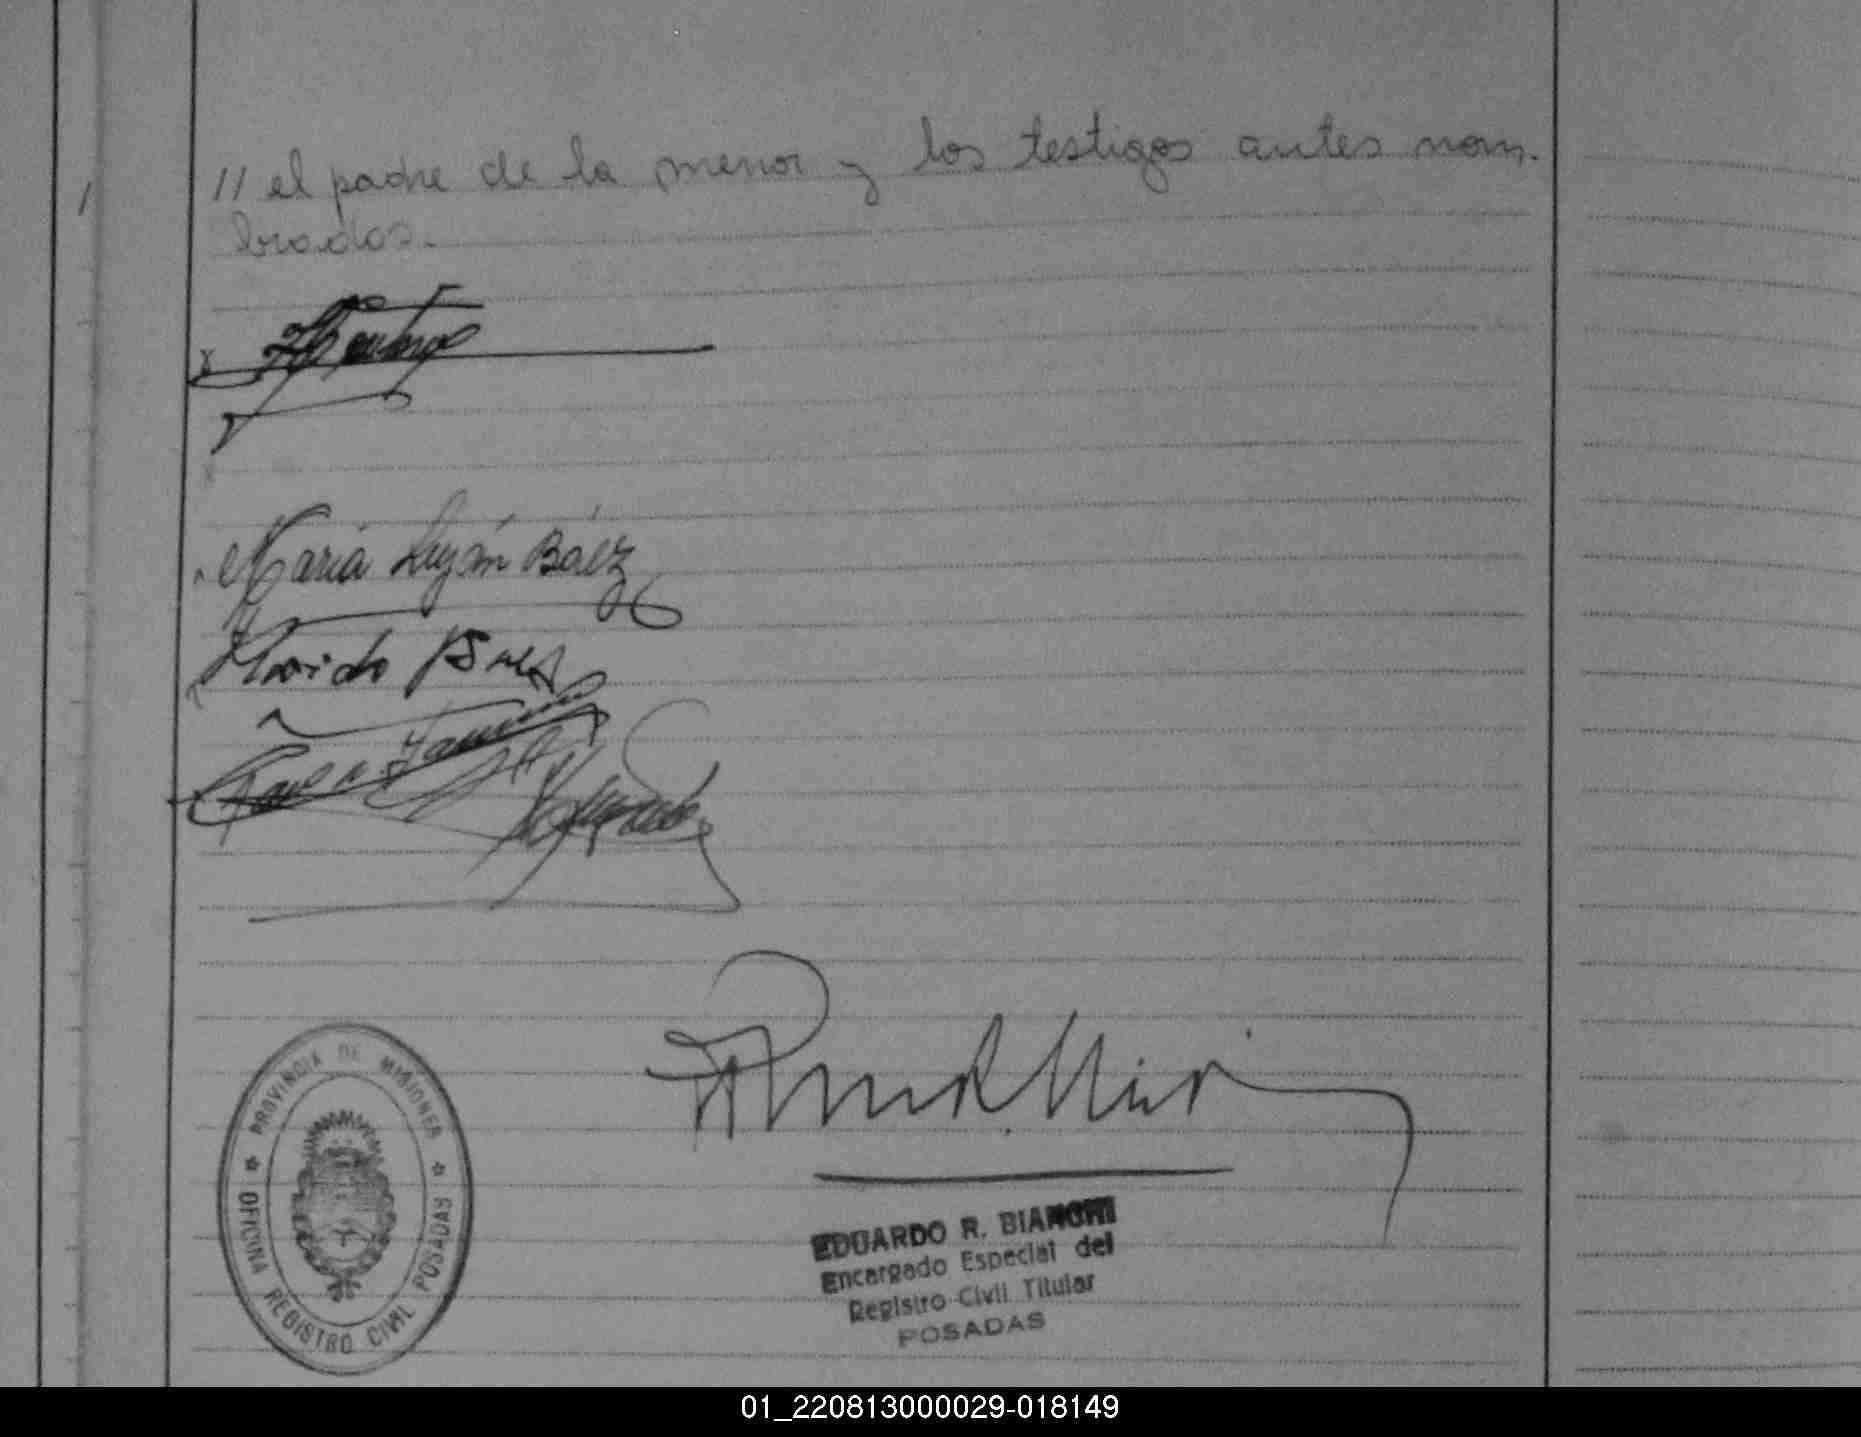 // el padre de la menor y los testigos antes nom-
brados.-
x
María Luján Báez
PROVINCIA DE MISIONES
OFICINA REGISTRO CIVIL POSADAS
EDUARDO R. BIANCHI
Encargado Especial del
Registro Civil Titular
POSADAS
01_220813000029-018149